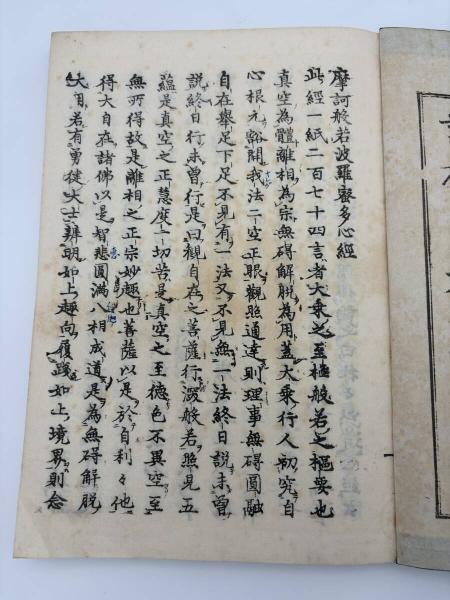 摩訶般若波羅蜜多心經
此經一紙二百七十四言者大乘之至極般若之樞要也
真空為體離相為宗無碍解脱為用蓋大乘行人初究自
心根元豁開我法二空正眼觀照通達則理事無碍圓融
自在舉足下足不見有一法又不見無一法終日説未曾
説終日行未曾行是曰觀自在之菩薩行深般若照見五
蘊是真空之正慧度一切苦是真空之至德色不異空至
無所得故是離相之正宗妙趣也菩薩以是於自利々他
得大自在諸佛以是智悲圓滿八相成道是為無碍解脱
大用若有勇健大士辨明如上趣向履踐如上境界則念